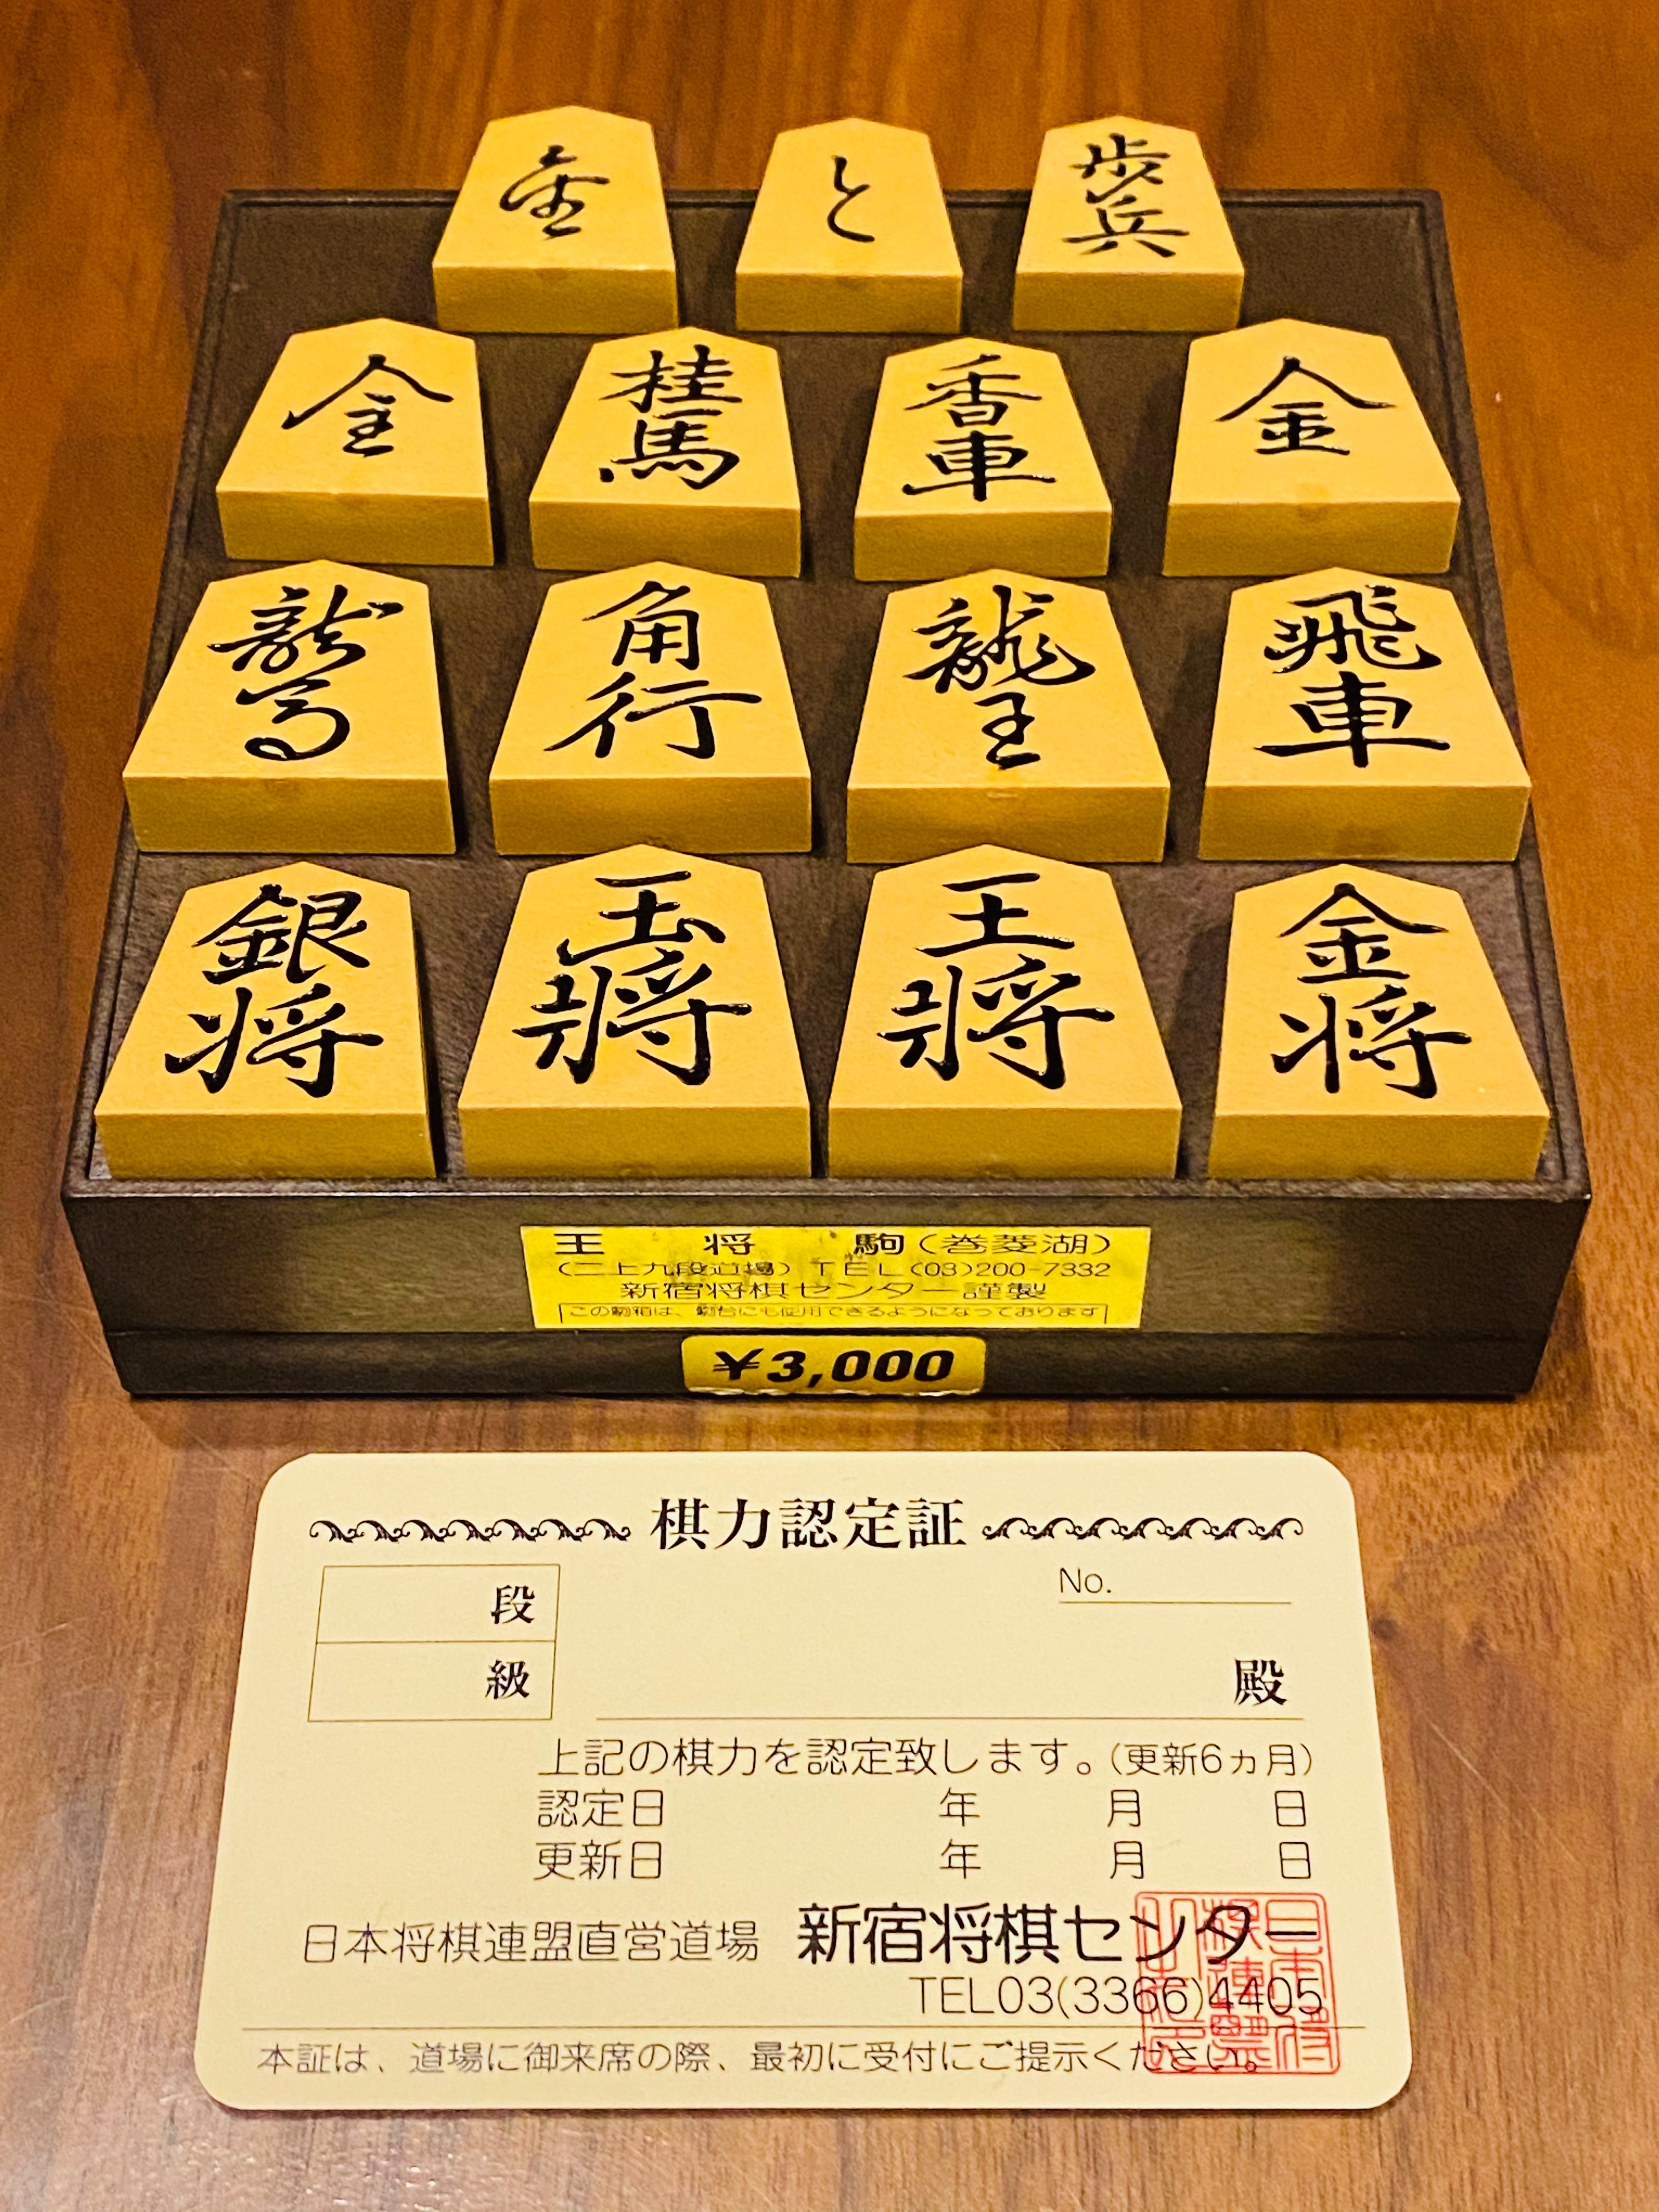 金 と 歩兵
全 桂馬 香車 金
龍馬 角行 龍王 飛車
銀将 玉將 王將 金将
王将駒(巻菱湖)
(二上九段道場) TEL(03)200-7332
新宿将棋センター謹製
この駒箱は、駒台にも使用できるようになっております
¥3,000
棋力認定証
段
No.
級
殿
上記の棋力を認定致します。(更新6ヵ月)
認定日 年 月 日
更新日 年 月 日
日本将棋連盟直営道場 新宿将棋センター
TEL03(3366)4405
本証は、道場に御来席の際、最初に受付にご提示ください。